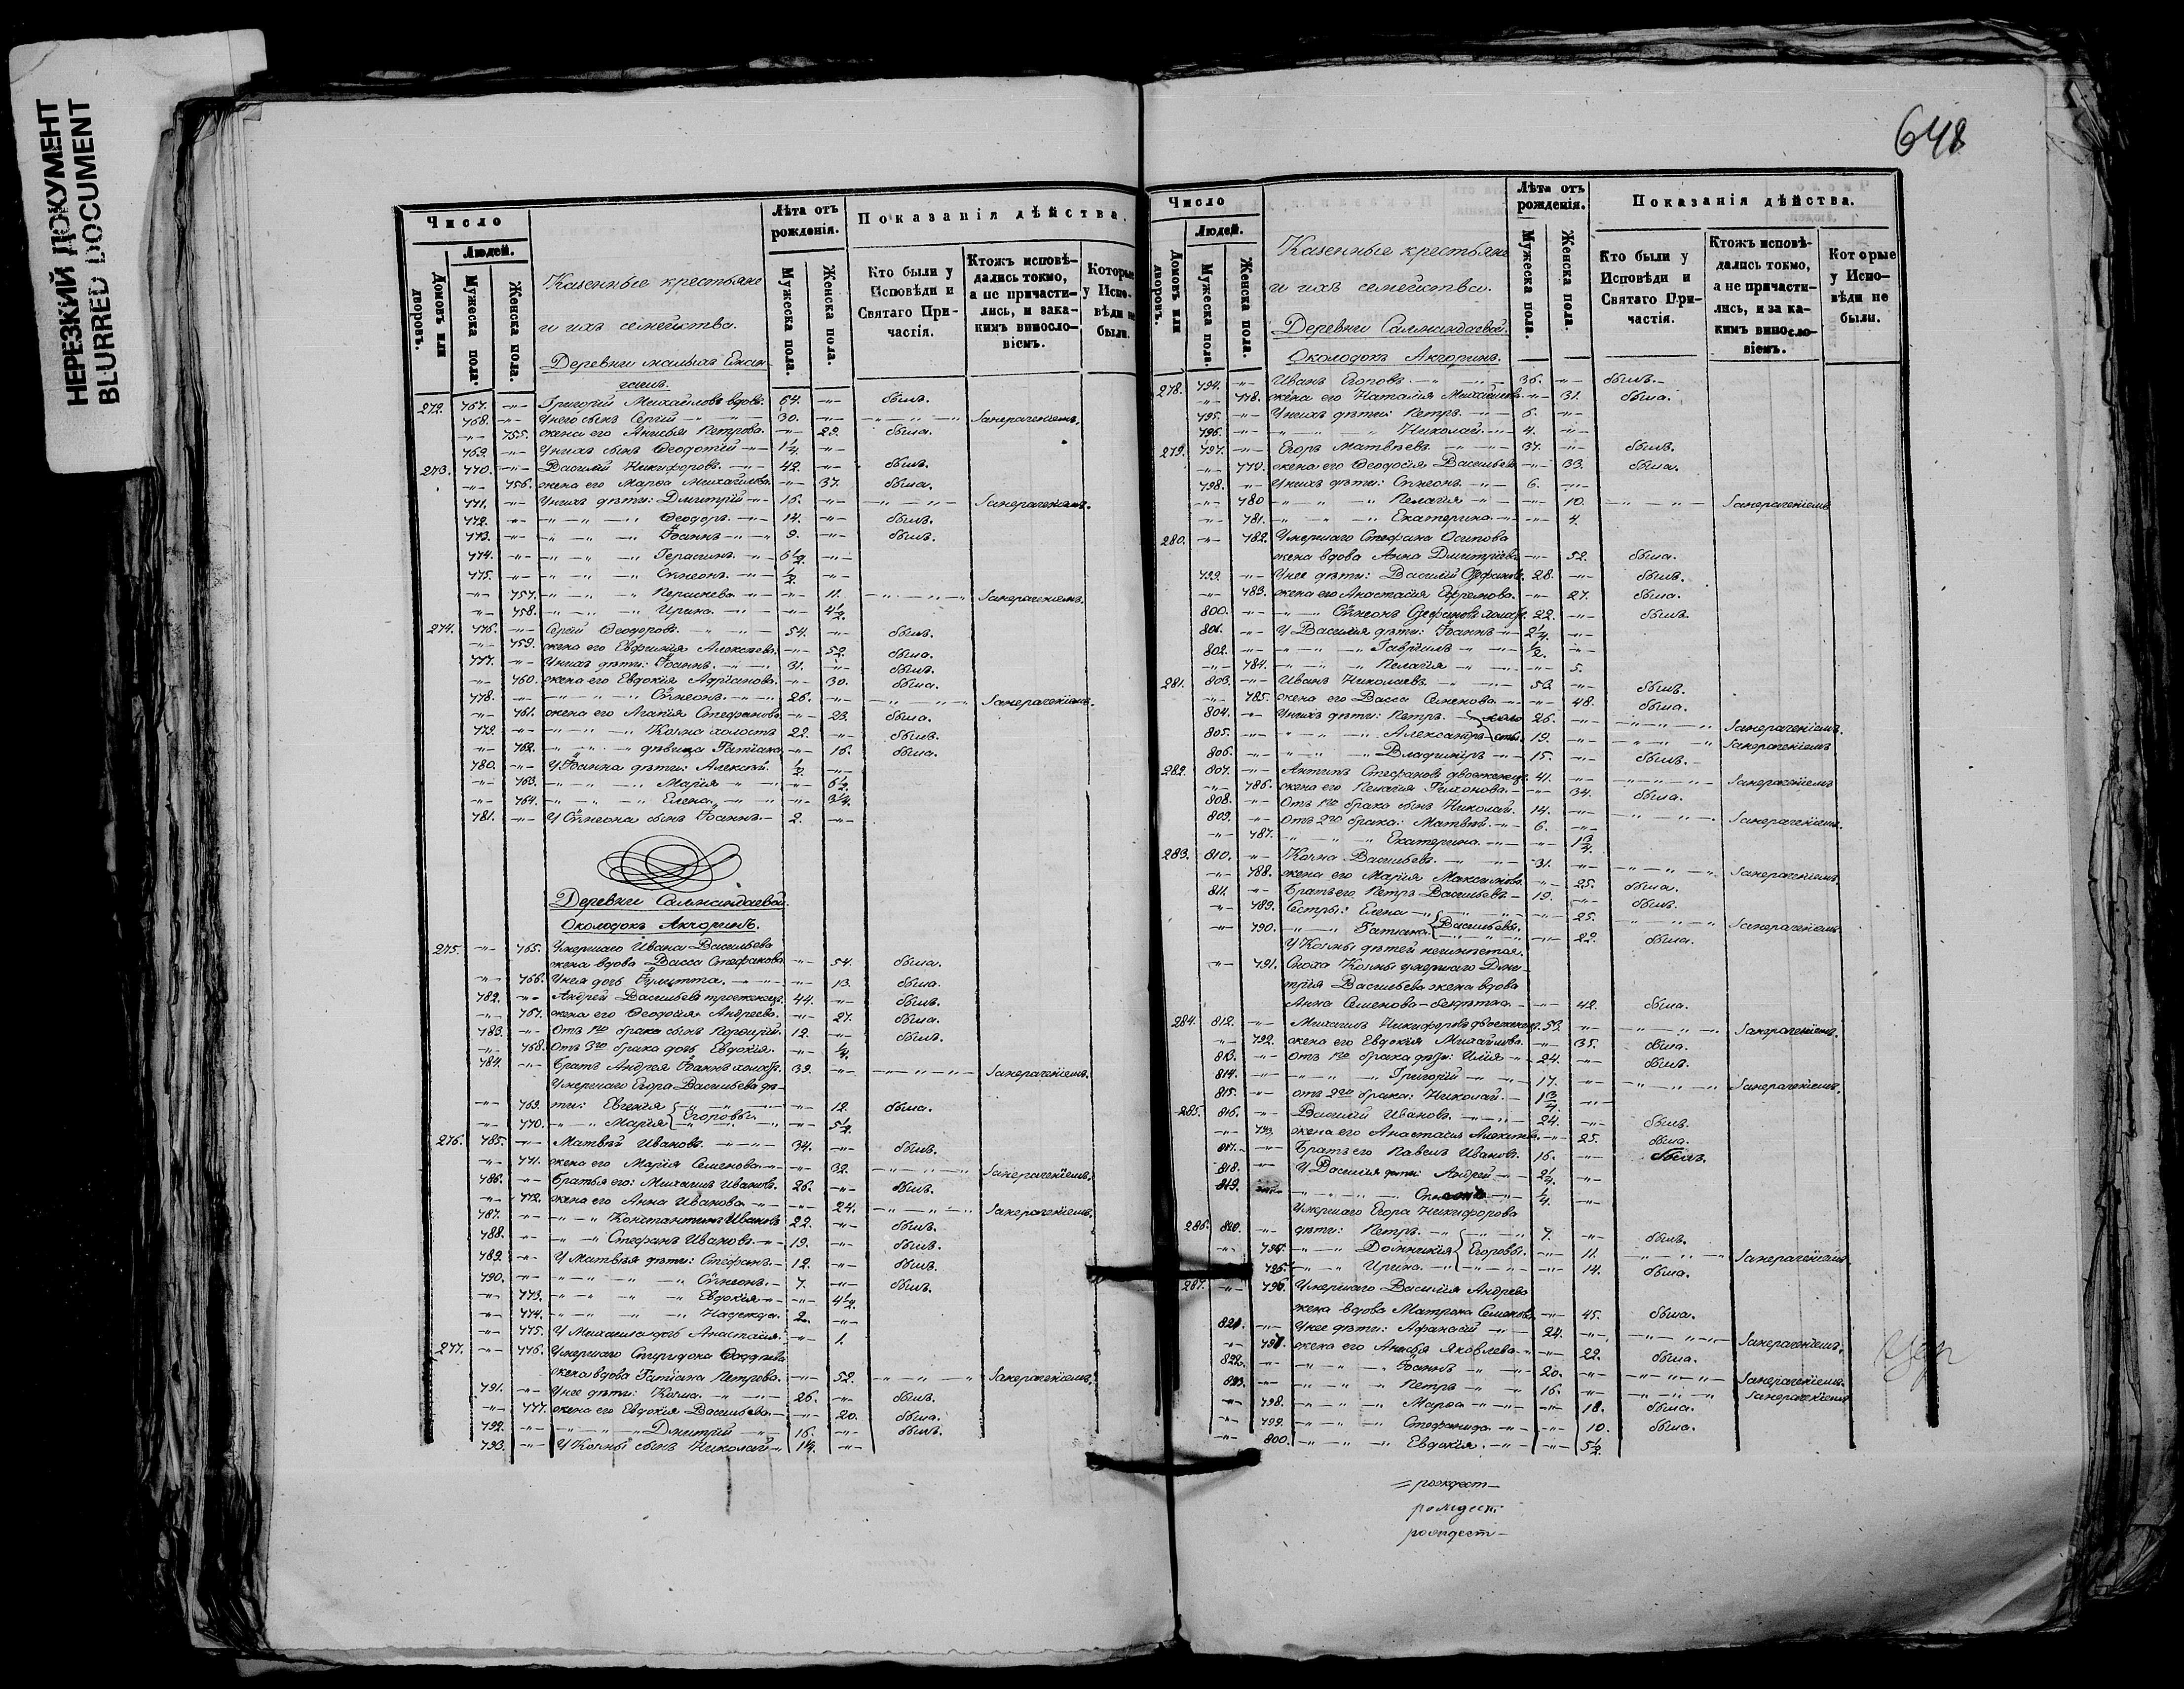 НЕРЕЗКИЙ ДОКУМЕНТ
BLURRED DOCUMENT
648
Число
Людей.
Домовъ или дворовъ.
Мужеска пола.
Женска пола.
Казенные крестьяне
и ихъ семейства.
Деревни малыхъ
Лѣта отъ рожденія.
Мужеска пола.
Женска пола.
Показанія дѣйства.
Кто были у Исповѣди и Святаго При-частія.
Ктожъ исповѣ-дались токмо, а не причасти-лись, и зака-кимъ винословіемъ.
Которые у Испо-вѣди не были.
272. 767. -"- Григорій Михайловъ вдовъ. 64. -"- былъ.
768. -"- У него сынъ Сергій 30. -"- За нераченіемъ.
-"- 755. жена его Анисья Петрова. -"- 29. была.
769. -"- У нихъ сынъ Ѳеодотій 1¼. -"-
273. 770. -"- Василій Никифоровъ. 42. -"- былъ.
-"- 756. жена его Марѳа Михайлова. -"- 37. была.
771. -"- У нихъ дѣти: Дмитрій 16. -"- За нераченіемъ.
772. -"- Ѳеодоръ. 14. -"- былъ.
773. -"- Іоаннъ 9. -"- былъ.
774. -"- Герасимъ. 6½. -"-
775. -"- Сѵмеонъ. ½. -"-
-"- 757. -"- 11. За нераченіемъ.
-"- 758. Ирина. -"- 4½.
274. 776. -"- Сергій Ѳеодоровъ. 54. -"- былъ.
-"- 759. жена его Евфимія Алексѣева. -"- 52. была.
777. -"- У нихъ дѣти: Іоаннъ. 31. -"- былъ.
-"- 760. жена его Евдокія Адріанова. -"- 30. была.
778. -"- Сѵмеонъ. 26. -"- За нераченіемъ.
-"- 761. жена его Агапія Стефанова. -"- 23. была.
779. -"- Козма холостъ 22. -"- былъ.
-"- 762. дѣвица Татіана -"- 16. была.
780. -"- У Іоанна дѣти: Алексѣй. ½. -"-
-"- 763. Марія -"- 6½.
-"- 764. Елена. -"- 3¼.
781. -"- У Сѵмеона сынъ Іоаннъ. 2. -"-
Деревни Салмандаевой.
Околодокъ Акчоринъ.
275. -"- 765. Умершаго Ивана Васильева
жена вдова Васса Стефанова -"- 54. была.
-"- 766. У нея дочь Іулитта. -"- 13. была.
782. -"- Андрей Васильевъ троеженецъ. 44. -"- былъ.
-"- 767. жена его Ѳеодосія Андреева. -"- 27. была.
783. -"- Отъ 1го брака сынъ Порфирій. 12. -"- былъ.
-"- 768. Отъ 3го брака дочь Евдокія. -"- ¼.
784. -"- Братъ Андрея Іоаннъ холостъ. 39. -"- За нераченіемъ.
Умершаго Егора Васильева дѣ-
-"- 769. ти: Евгенія -"- 12. была.
-"- 770. Марія Егоровы. -"- 5½.
276. 785. -"- Матвѣй Ивановъ. 34. -"- былъ.
-"- 771. жена его Марія Семенова. -"- 32. За нераченіемъ.
786. -"- Братья его: Михаилъ Ивановъ. 26. -"- былъ.
-"- 772. жена его Анна Иванова -"- 24. За нераченіемъ.
787. -"- Константинъ Ивановъ 22. -"- былъ.
788. -"- Стефанъ Ивановъ. 19. -"- былъ.
789. -"- У Матвѣя дѣти: Стефанъ. 12. -"- былъ.
790. -"- Сѵмеонъ. 7. -"- былъ.
-"- 773. Евдокія -"- 4½.
-"- 774. Надежда. 2. -"-
-"- 775. У Михаила дочь Анастасія. -"- 1.
277. -"- 776. Умершаго Спиридона Ѳаддѣева
жена вдова Татіана Петрова. -"- 52. За нераченіемъ.
791. -"- У нее дѣти: Козма. 26. -"- былъ.
-"- 777. жена его Евдокія Васильева. -"- 20. была.
792. -"- Дмитрій 16. -"- былъ.
793. -"- У Козмы сынъ Николай 1¼. -"-
Число
Людей.
Домовъ или дворовъ.
Мужеска пола.
Женска пола.
Казенные крестьяне
и ихъ семейства.
Деревни Салмандаевой.
Околодокъ Акчоринъ.
Лѣта отъ рожденія.
Мужеска пола.
Женска пола.
Показанія дѣйства.
Кто были у Исповѣди и Святаго При-частія.
Ктожъ исповѣ-дались токмо, а не причасти-лись, и за ка-кимъ винословіемъ.
Которые у Испо-вѣди не были.
278. 794. -"- Иванъ Егоровъ. 36. -"- былъ.
-"- 778. жена его Наталія Михайлова -"- 31. была.
795. -"- У нихъ дѣти: Петръ. 6. -"-
796. -"- Николай. 4. -"-
279. 797. -"- Егоръ Матвѣевъ. 37. -"- былъ.
-"- 779. жена его Ѳеодосія Васильева -"- 33. была.
798. -"- У нихъ дѣти: Сѵмеонъ. 6. -"-
-"- 780 Пелагія -"- 10. За нераченіемъ
-"- 781. Екатерина -"- 4.
280. -"- 782. Умершаго Стефана Осипова
жена вдова Анна Дмитріева -"- 52. была.
799. -"- У нее дѣти: Василій Стефановъ. 28. -"- былъ.
-"- 783. жена его Анастасія Ефремова. -"- 27. была.
800. -"- Сѵмеонъ Стефановъ холостъ. 22. -"- былъ.
801. -"- У Василія дѣти: Іоаннъ 2¼. -"-
802. -"- Гавріилъ ½. -"-
-"- 784. Пелагія -"- 5.
281. 803. -"- Иванъ Николаевъ 53. -"- былъ.
-"- 785. жена его Васса Семенова. -"- 48. была.
804. -"- У нихъ дѣти: Петръ. холо 26. -"- За нераченіемъ.
805. -"- Александръ сты. 19. -"- За нераченіемъ
806. -"- Владиміръ 15. -"- былъ.
282. 807. -"- Антипъ Стефановъ двоеженецъ. 41. -"- За нераченіемъ
-"- 786. жена его Пелагія Тихонова. -"- 34. была.
808. -"- Отъ 1го брака сынъ Николай. 14. -"- За нераченіемъ.
809. -"- Отъ 2го брака: Матвѣй. 6. -"-
-"- 787. Екатерина. -"- 1¾.
283. 810. -"- Козма Васильевъ. 31. -"- За нераченіемъ.
-"- 788. жена его Марія Максимова. -"- 25. была.
811. -"- Братъ его Петръ Васильевъ. 19. -"- былъ.
-"- 789. Сестры: Елена -"- 25. За нераченіемъ
-"- 790. Татіана Васильевы. -"- 22. была.
У Козмы дѣтей неимѣется.
-"- 791. Сноха Козмы умершаго Дми-
трія Васильева жена вдова
Анна Семенова-бездѣтна. -"- 42. была.
284. 812. -"- Михаилъ Никифоровъ двоеженецъ. 53. -"- За нераченіемъ.
-"- 792. жена его Евдокія Михайлова. -"- 35. была.
813. -"- Отъ 1го брака дѣти: Илія 24. -"- былъ.
814. -"- Григорій 17. -"- За нераченіемъ.
815. -"- отъ 2го брака: Николай. 1¾. -"-
285. 816. -"- Василій Ивановъ. 24. -"- былъ.
-"- 793. жена его Анастасія Алексѣева. -"- 25. была.
817. -"- Братъ его Павелъ Ивановъ. 16. -"- былъ.
818. -"- У Василія дѣти: Андрей 2¼. -"-
819. -"- ¼. -"-
Умершаго Егора Никифорова
286. 820. -"- дѣти: Петръ. 7. -"- былъ.
-"- 794. Домникія Егоровы. -"- 11. За нераченіемъ
-"- 795. Ирина. -"- 14. была.
287. -"- 796. Умершаго Василія Андреева
жена вдова Матрона Семенова. -"- 45. была.
821. -"- У нее дѣти: Афанасій 24. -"- За нераченіемъ.
-"- 797. жена его Анисья Яковлева -"- 22. была.
822. -"- Іоаннъ 20. -"- За нераченіемъ.
823. -"- Петръ 16. -"- За нераченіемъ
-"- 798. Марѳа -"- 18. была.
-"- 799. Стефанида -"- 10. была.
-"- 800. Евдокія. -"- 5½.
= рождест-
рождест
рождест-